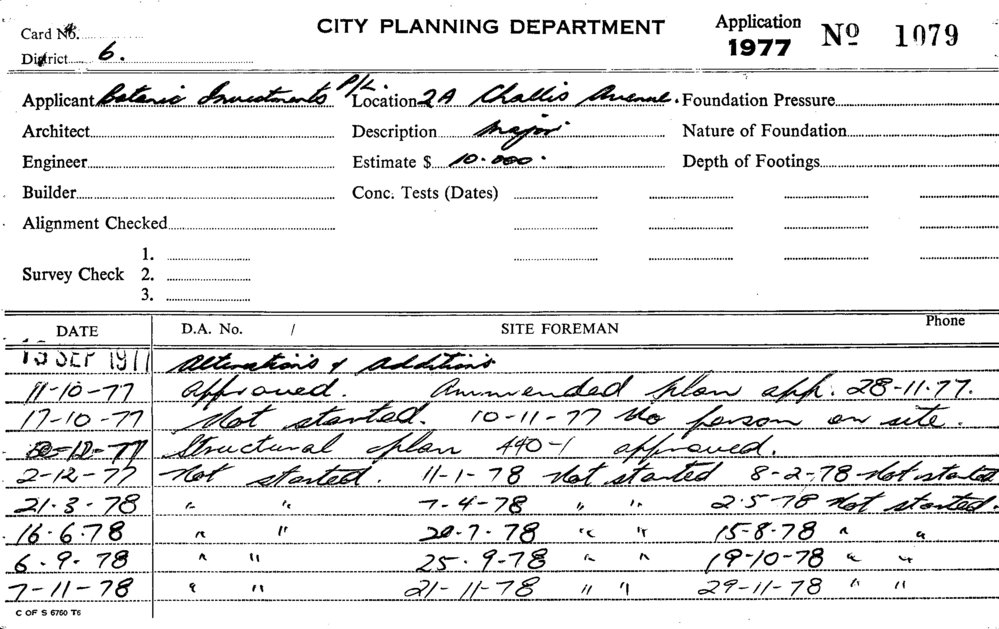 Card No. CITY PLANNING DEPARTMENT Application 1977 Nº 1079
District 6.
Applicant Botanic Investments P/L. Location 2A Challis Avenue. Foundation Pressure
Architect Description Major Nature of Foundation
Engineer Estimate $ 10.000. Depth of Footings
Builder Conc. Tests (Dates)
Alignment Checked
Survey Check 1.
2.
3.
DATE D.A. No. / SITE FOREMAN Phone
SEP 1977 Alterations & Additions
11-10-77 Approved. Ammended plan app. 28-11-77.
17-10-77 Not started. 10-11-77 No person on site.
-12-77 Structural plan 440-1 approved.
2-12-77 Not started. 11-1-78 Not started 8-2-78 Not started
21-3-78 " " 7-4-78 " " 2.5-78 Not started.
16-6-78 " " 20-7-78 " " 15-8-78 " "
6-9-78 " " 25-9-78 " " 19-10-78 " "
7-11-78 " " 21-11-78 " " 29-11-78 " "
C OF S 6750 T6